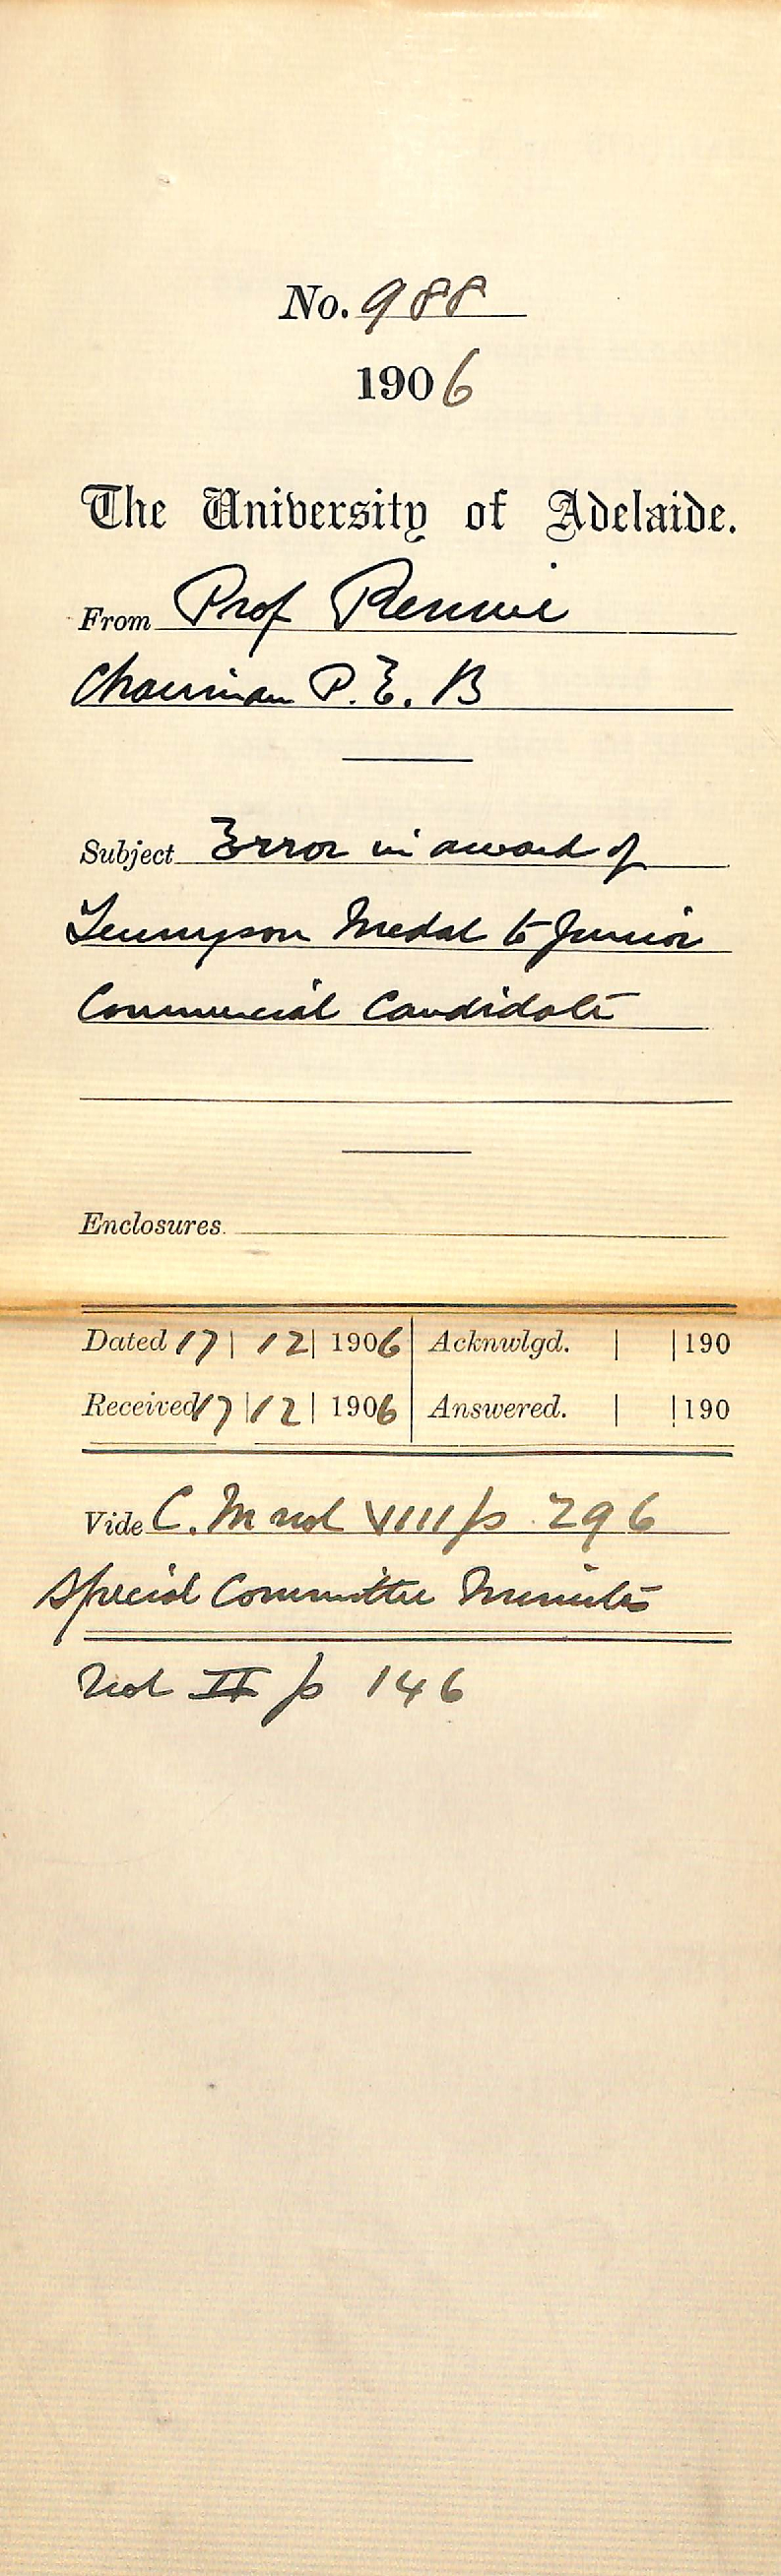 No. 988
1906
The University of Adelaide.
From Prof Rennie
Chairman P.E.B
Subject Error in award of
Tennyson Medal to Junior
Commercial Candidate
Enclosures.
Dated 17 | 12 | 1906 Acknwlgd. | | 190
Received 17 | 12 | 1906 Answered. | | 190
Vide C.M vol VIII p 296
Special Committee Minutes
Vol II p 146